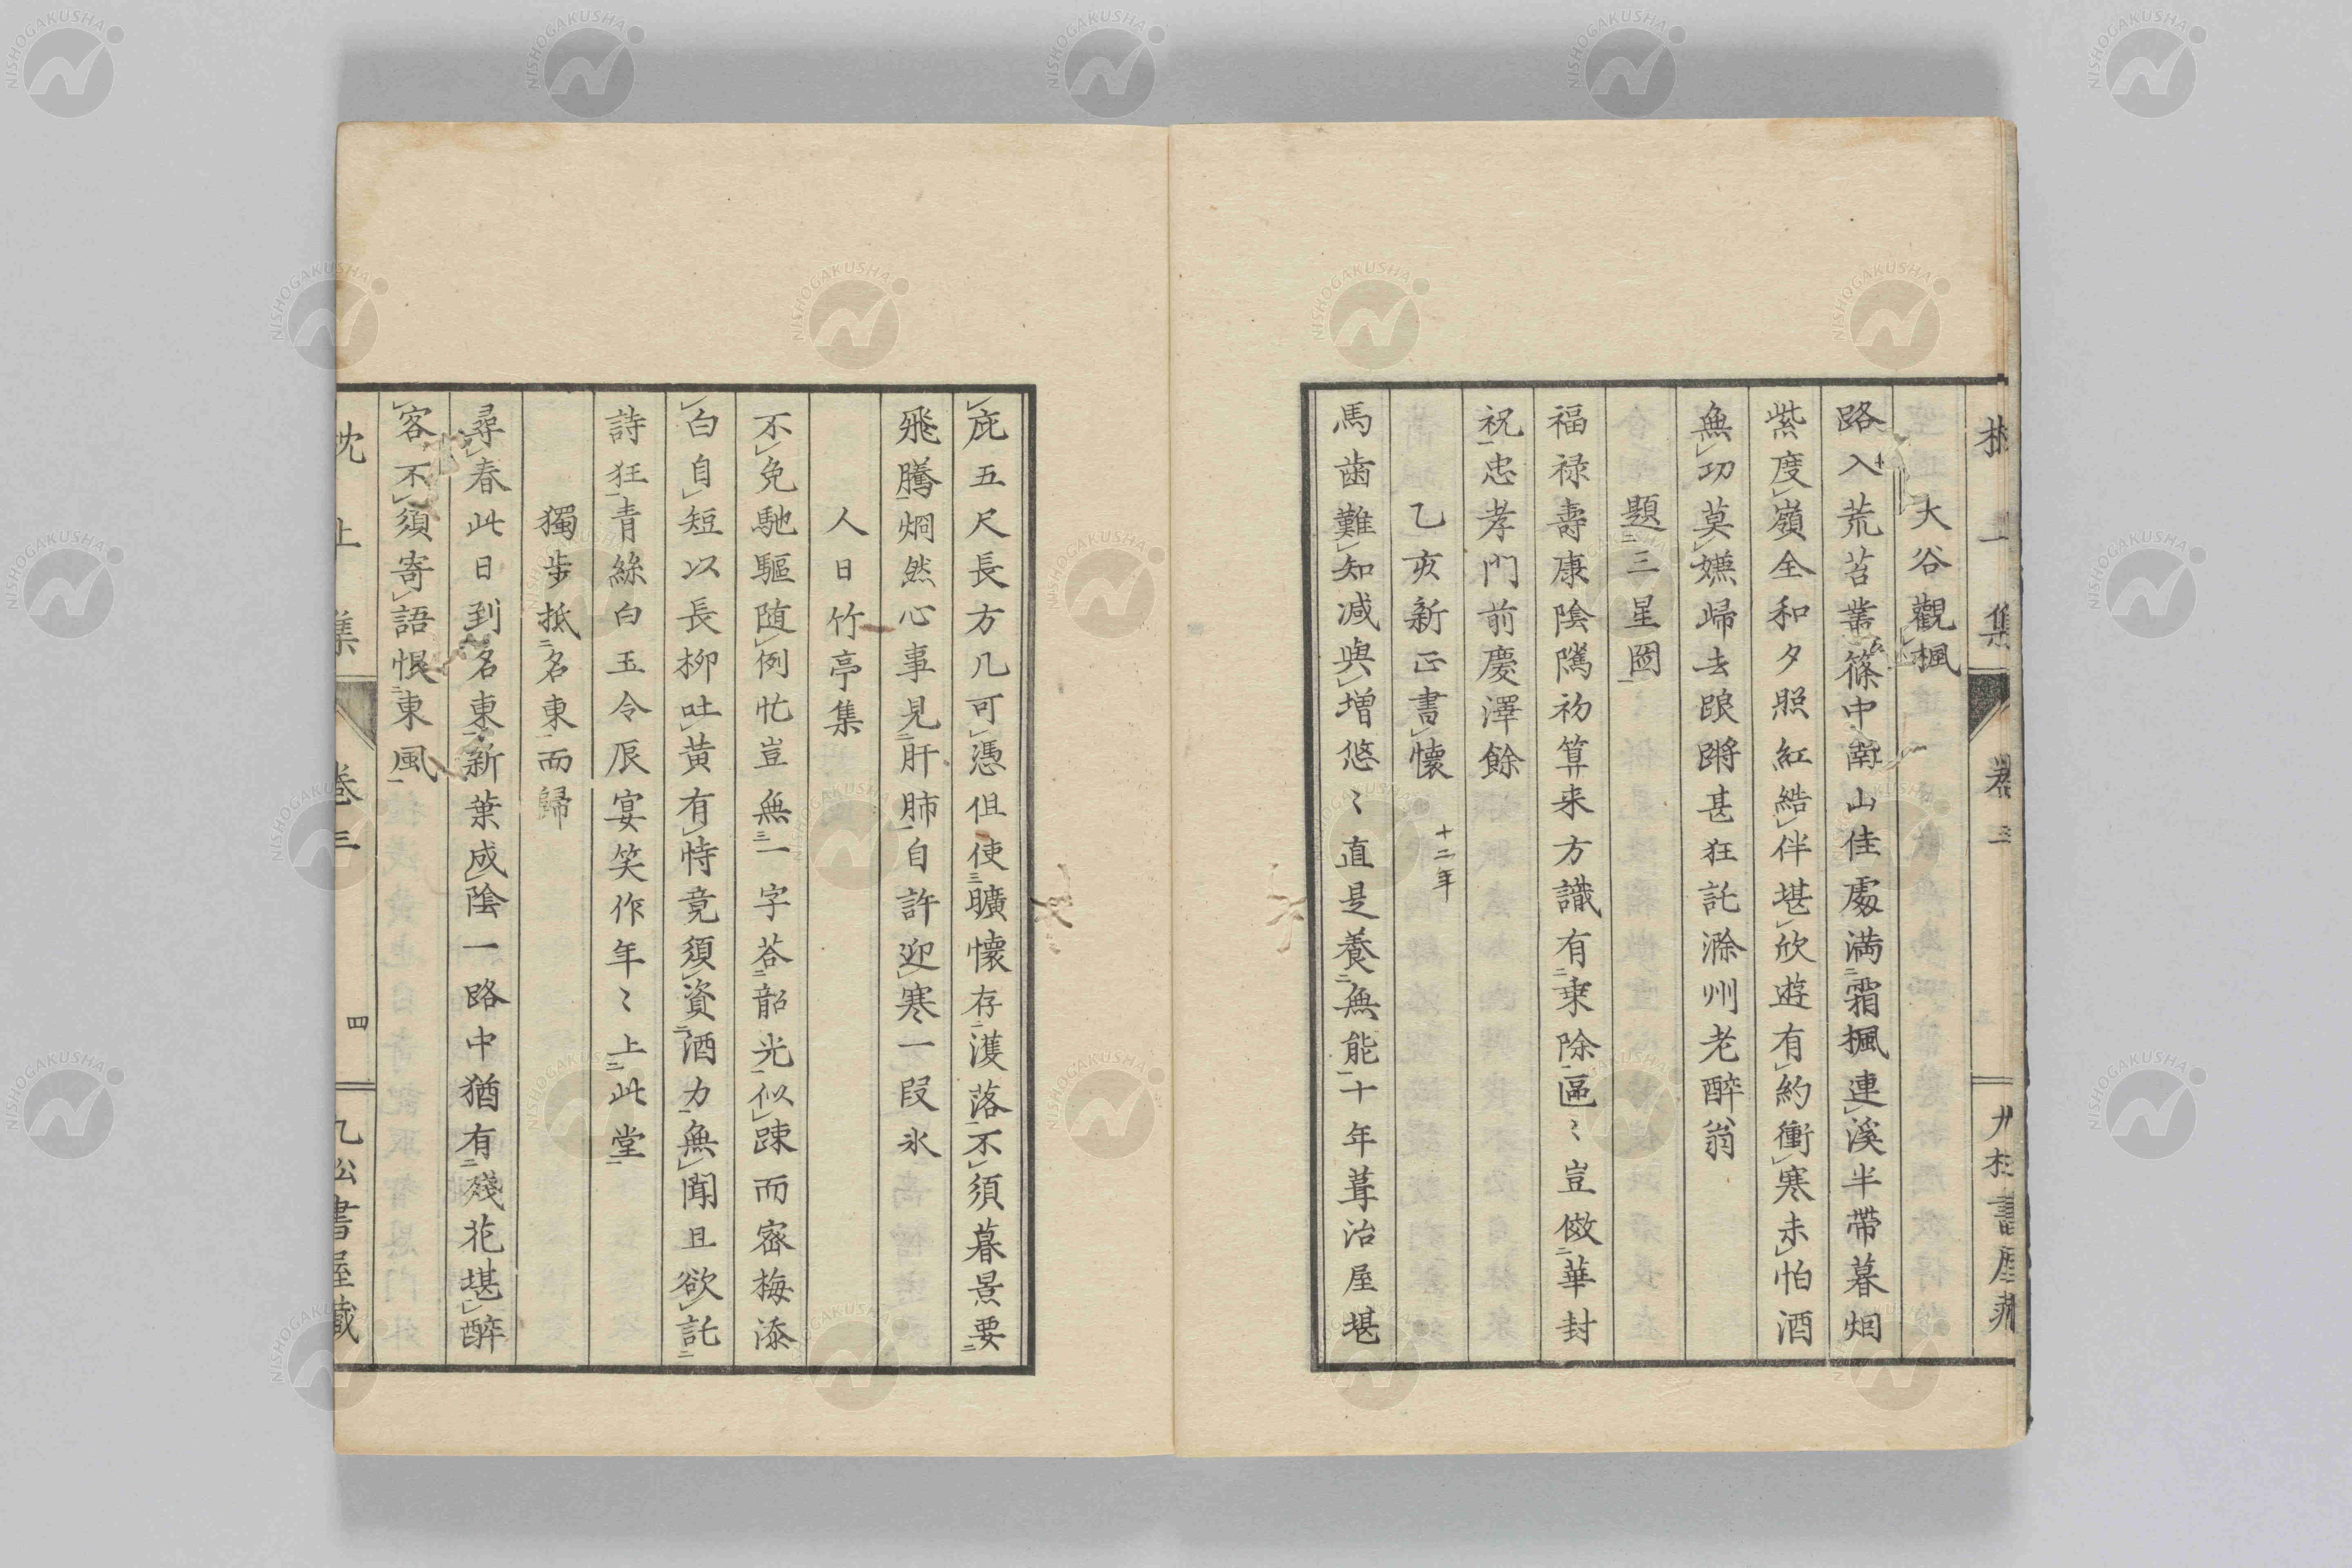 枕上集　卷三　九松書屋藏
大谷觀楓
路入荒苔叢篠中南山佳處満霜楓連溪半帶暮烟
紫度嶺全和夕照紅結伴堪欣遊有約衝寒未怕酒
無功莫嫌歸去踉蹡甚狂託滁州老醉翁
題三星圖
福禄壽康陰隲初算来方識有乗除區〻豈倣華封
祝忠孝門前慶澤餘
乙亥新正書懷　十二年
馬齒難知减與増悠〻直是養無能十年葺治屋堪
庇五尺長方几可憑但使曠懐存濩落不須暮景要
飛騰炯然心事見肝肺自許迎寒一段氷
人日竹亭集
不免馳驅随例忙豈無一字荅韶光似踈而宻梅添
白自短以長柳吐黄有恃竟須資酒力無聞且欲託
詩狂青絲白玉令辰宴笑作年〻上此堂
獨步抵名東而歸
尋春此日到名東新葉成陰一路中猶有殘花堪醉
客不須寄語恨東風
枕上集　卷三　四　九松書屋藏
NISHOGAKUSHA